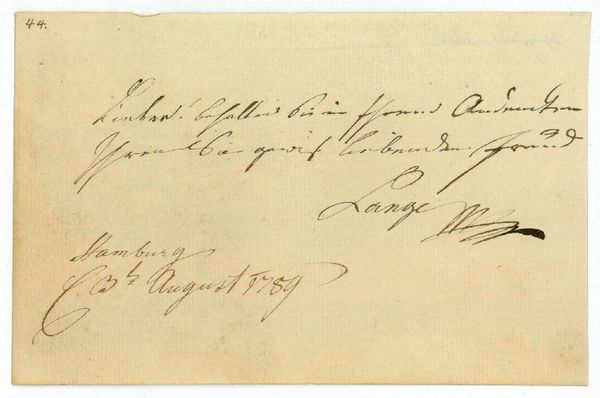 44.
Lieber! behalten Sie in Ihrem Andencken
Ihren Sie gewis liebenden Freund
Lange
Hamburg
3t August 1789